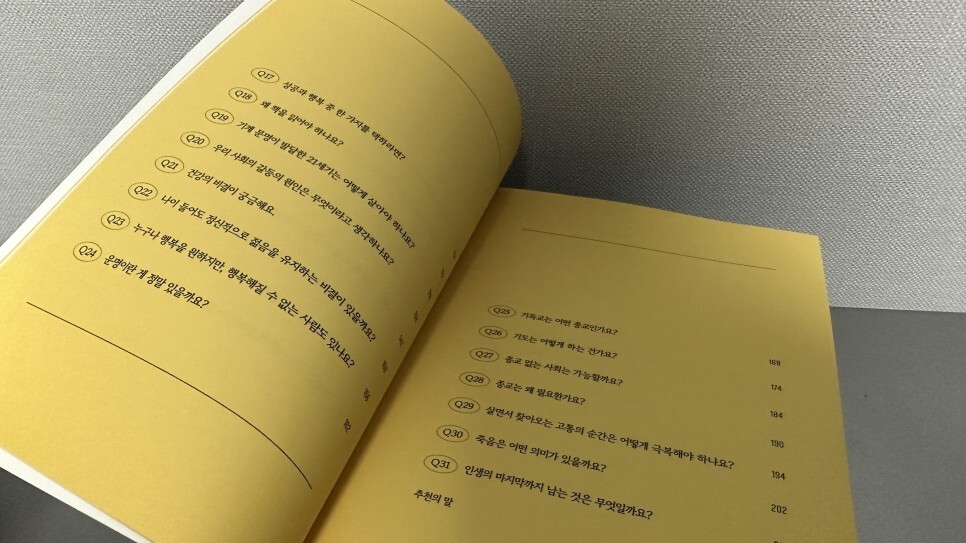 Q17 성공과 행복 중 한 가지를 택하라면?
Q18 왜 책을 읽어야 하나요?
Q19 기계 문명이 발달한 21세기는 어떻게 살아야 하나요?
Q20 우리 사회의 갈등의 원인은 무엇이라고 생각하나요?
Q21 건강의 비결이 궁금해요.
Q22 나이 들어도 정신적으로 젊음을 유지하는 비결이 있을까요?
Q23 누구나 행복을 원하지만, 행복해질 수 없는 사람도 있나요?
Q24 운명이란 게 정말 있을까요?
Q25 기독교는 어떤 종교인가요? 168
Q26 기도는 어떻게 하는 건가요? 174
Q27 종교 없는 사회는 가능할까요? 184
Q28 종교는 왜 필요한가요? 190
Q29 살면서 찾아오는 고통의 순간은 어떻게 극복해야 하나요? 194
Q30 죽음은 어떤 의미가 있을까요? 202
Q31 인생의 마지막까지 남는 것은 무엇일까요?
추천의 말